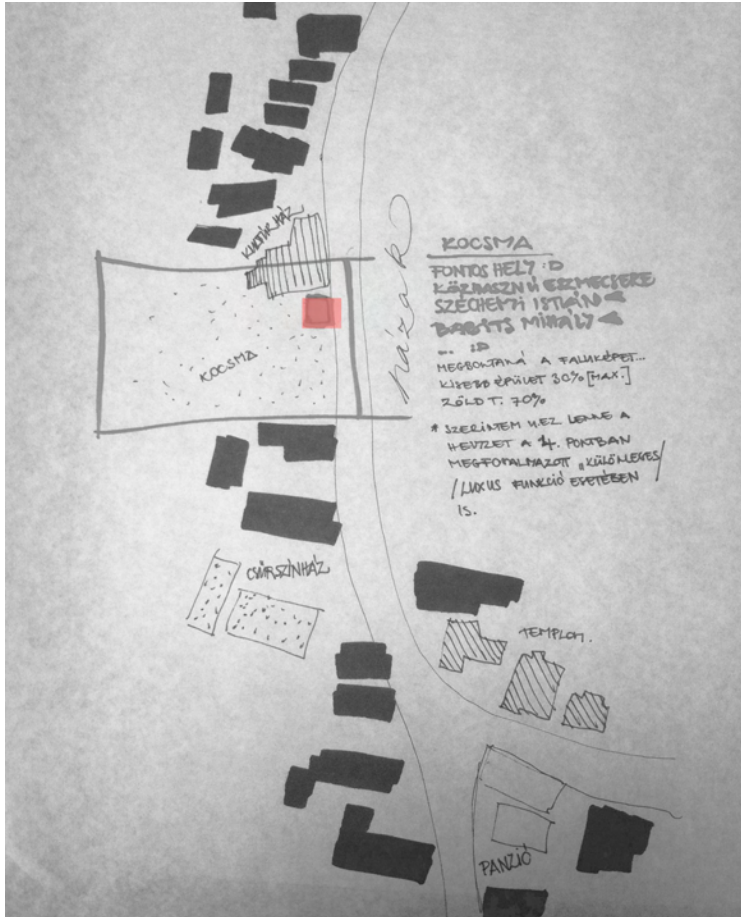 KULTÚRHÁZ
házak
KOCSMA
KOCSMA
FONTOS HELY :D
KÖZPASZNÚ ESZMECSERE
SZÉCHENYI ISTVÁN
BABITS MIHÁLY
... :D
MEGBONTANÁ A FALUKÉPET...
KISEBB ÉPÜLET 30% [MAX.]
ZÖLD T. 70%
* SZERINTEM EZ LENNE A
HELYZET A 4. PONTBAN
MEGFOGALMAZOTT „KÜLÖNLEGES/
/LUXUS FUNKCIÓ ESETÉBEN
IS.
CSŰRSZÍNHÁZ
TEMPLOM.
PANZIÓ